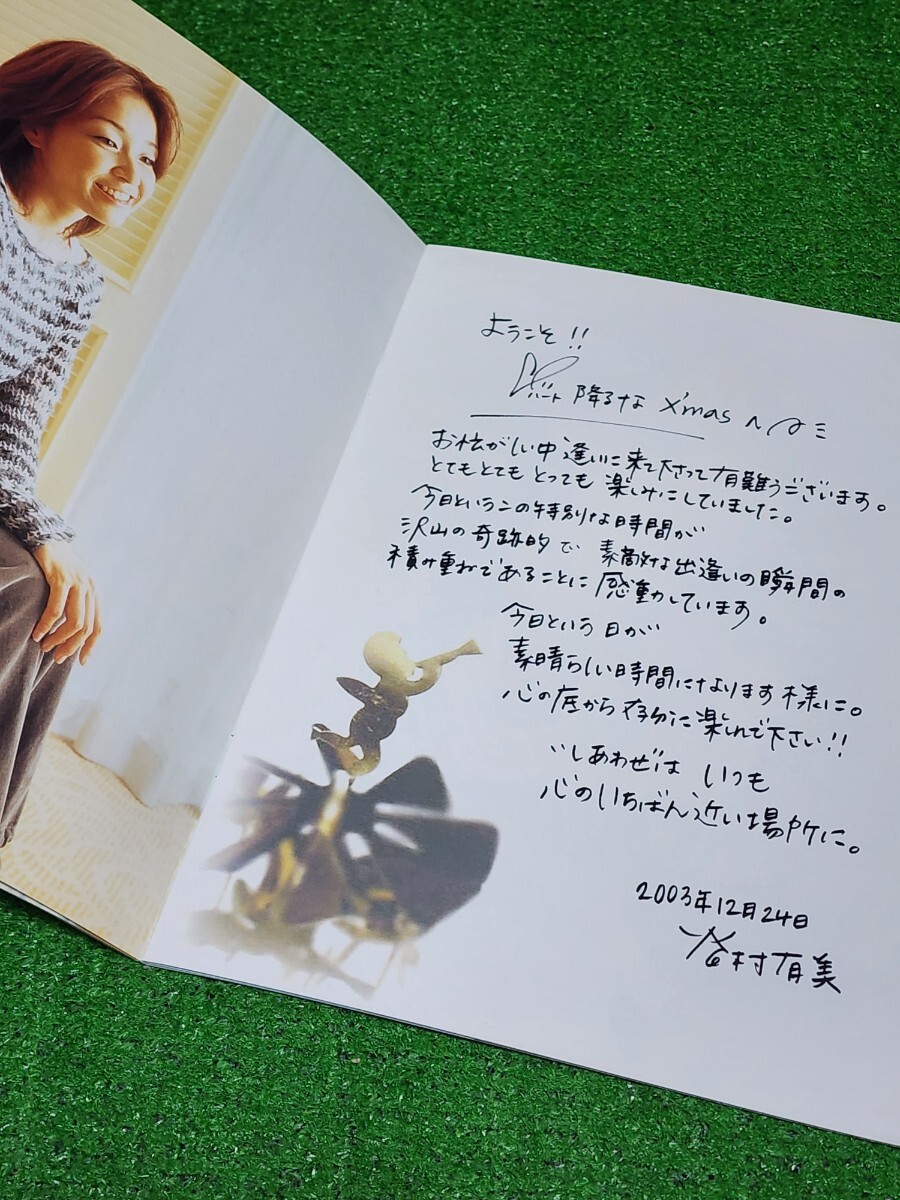 ようこそ!!
ハート降るな X'mas へ
お忙がしい中 逢いに来て下さって有難うございます。
とてもとても とっても 楽しみにしていました。
今日というこの特別な時間が
沢山の奇跡的で 素敵な出逢いの瞬間の
積み重ねであることに 感動しています。
今日という日が
素晴らしい時間になります様に。
心の底から存分に楽しんで下さい!!
"しあわせ"は いつも
心のいちばん近い場所に。
2003年12月24日
谷村有美